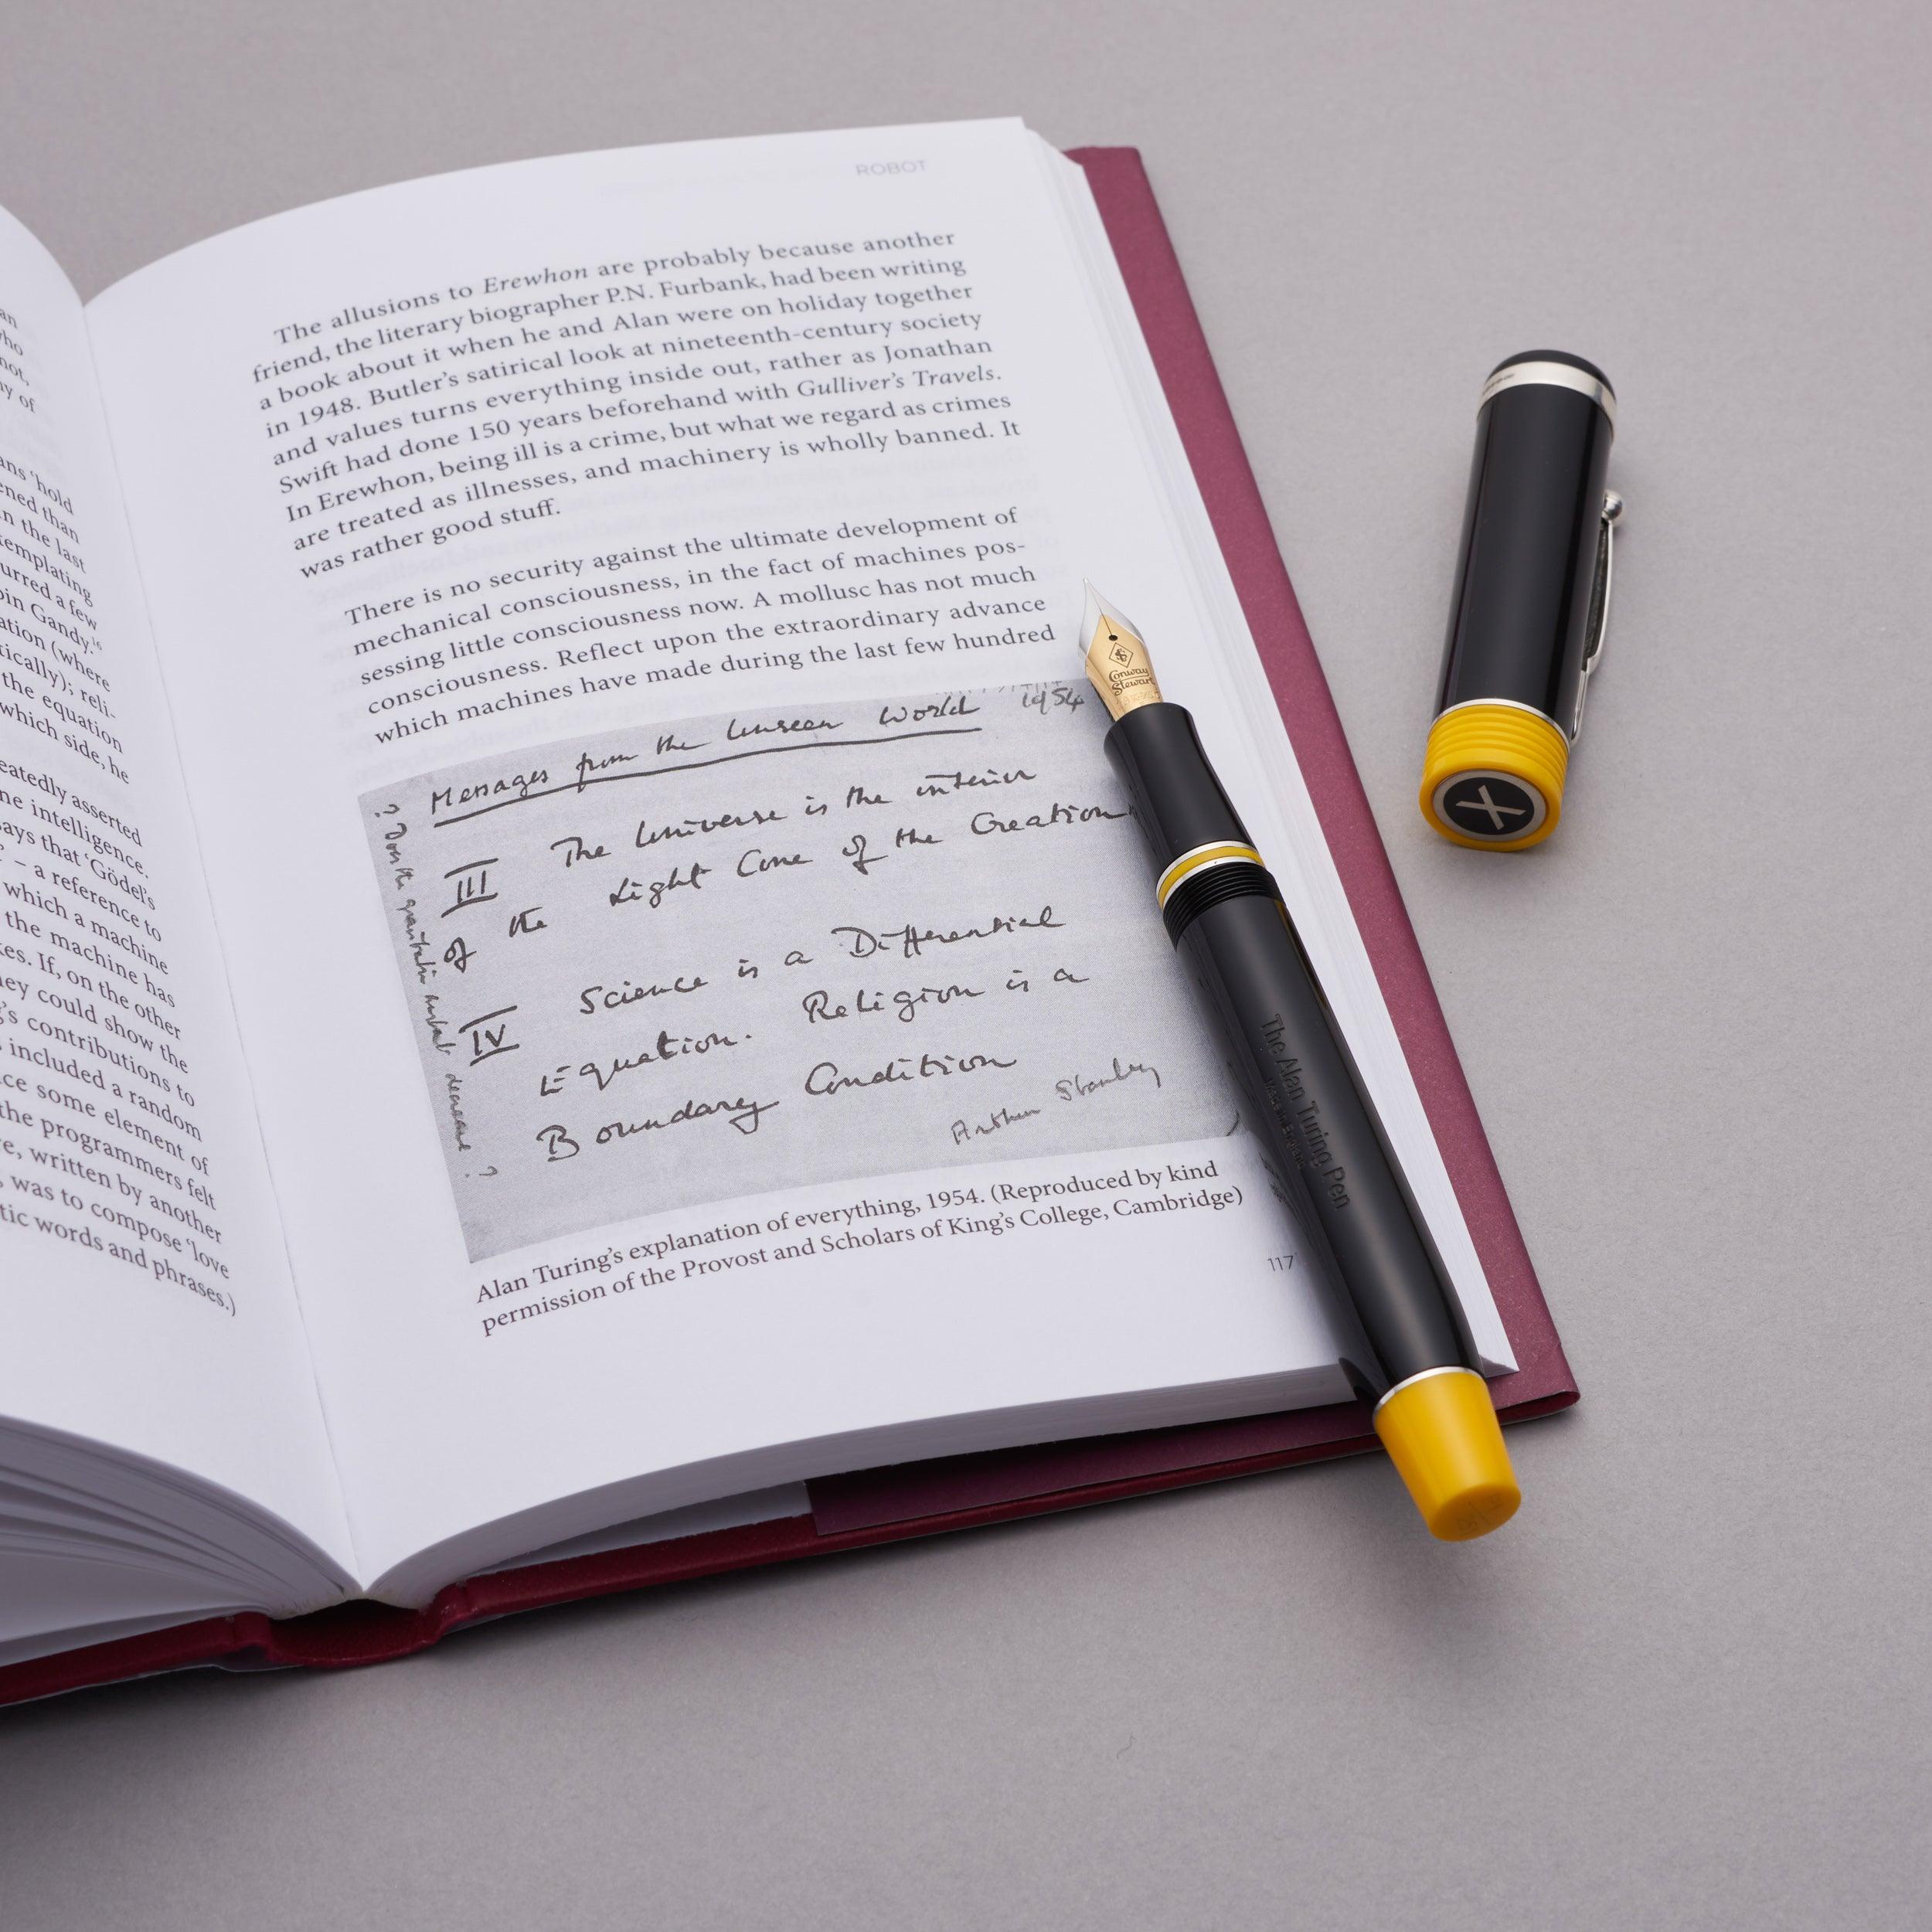 an
who
not,
ny of
ans ‘hold
ened than
n the last
templating
urred a few
bin Gandy.¹⁶
ation (where
tically); reli-
the equation
which side, he
eatedly asserted
ne intelligence.
says that ‘Gödel’s
– a reference to
which a machine
the machine has
kes. If, on the other
hey could show the
g’s contributions to
s included a random
ce some element of
the programmers felt
re, written by another
, was to compose ‘love
tic words and phrases.)
ROBOT
The allusions to Erewhon are probably because another
friend, the literary biographer P.N. Furbank, had been writing
a book about it when he and Alan were on holiday together
in 1948. Butler’s satirical look at nineteenth-century society
and values turns everything inside out, rather as Jonathan
Swift had done 150 years beforehand with Gulliver’s Travels.
In Erewhon, being ill is a crime, but what we regard as crimes
are treated as illnesses, and machinery is wholly banned. It
was rather good stuff.
There is no security against the ultimate development of
mechanical consciousness, in the fact of machines pos-
sessing little consciousness now. A mollusc has not much
consciousness. Reflect upon the extraordinary advance
which machines have made during the last few hundred
Messages from the Unseen World 1954
III The Universe is the interior
of the Light Cone of the Creation
IV Science is a Differential
Equation. Religion is a
Boundary Condition
Arthur Stanley
? Does the gravitation constant decrease ?
Alan Turing’s explanation of everything, 1954. (Reproduced by kind
permission of the Provost and Scholars of King’s College, Cambridge)
117
Conway
Stewart
The Alan Turing Pen
X